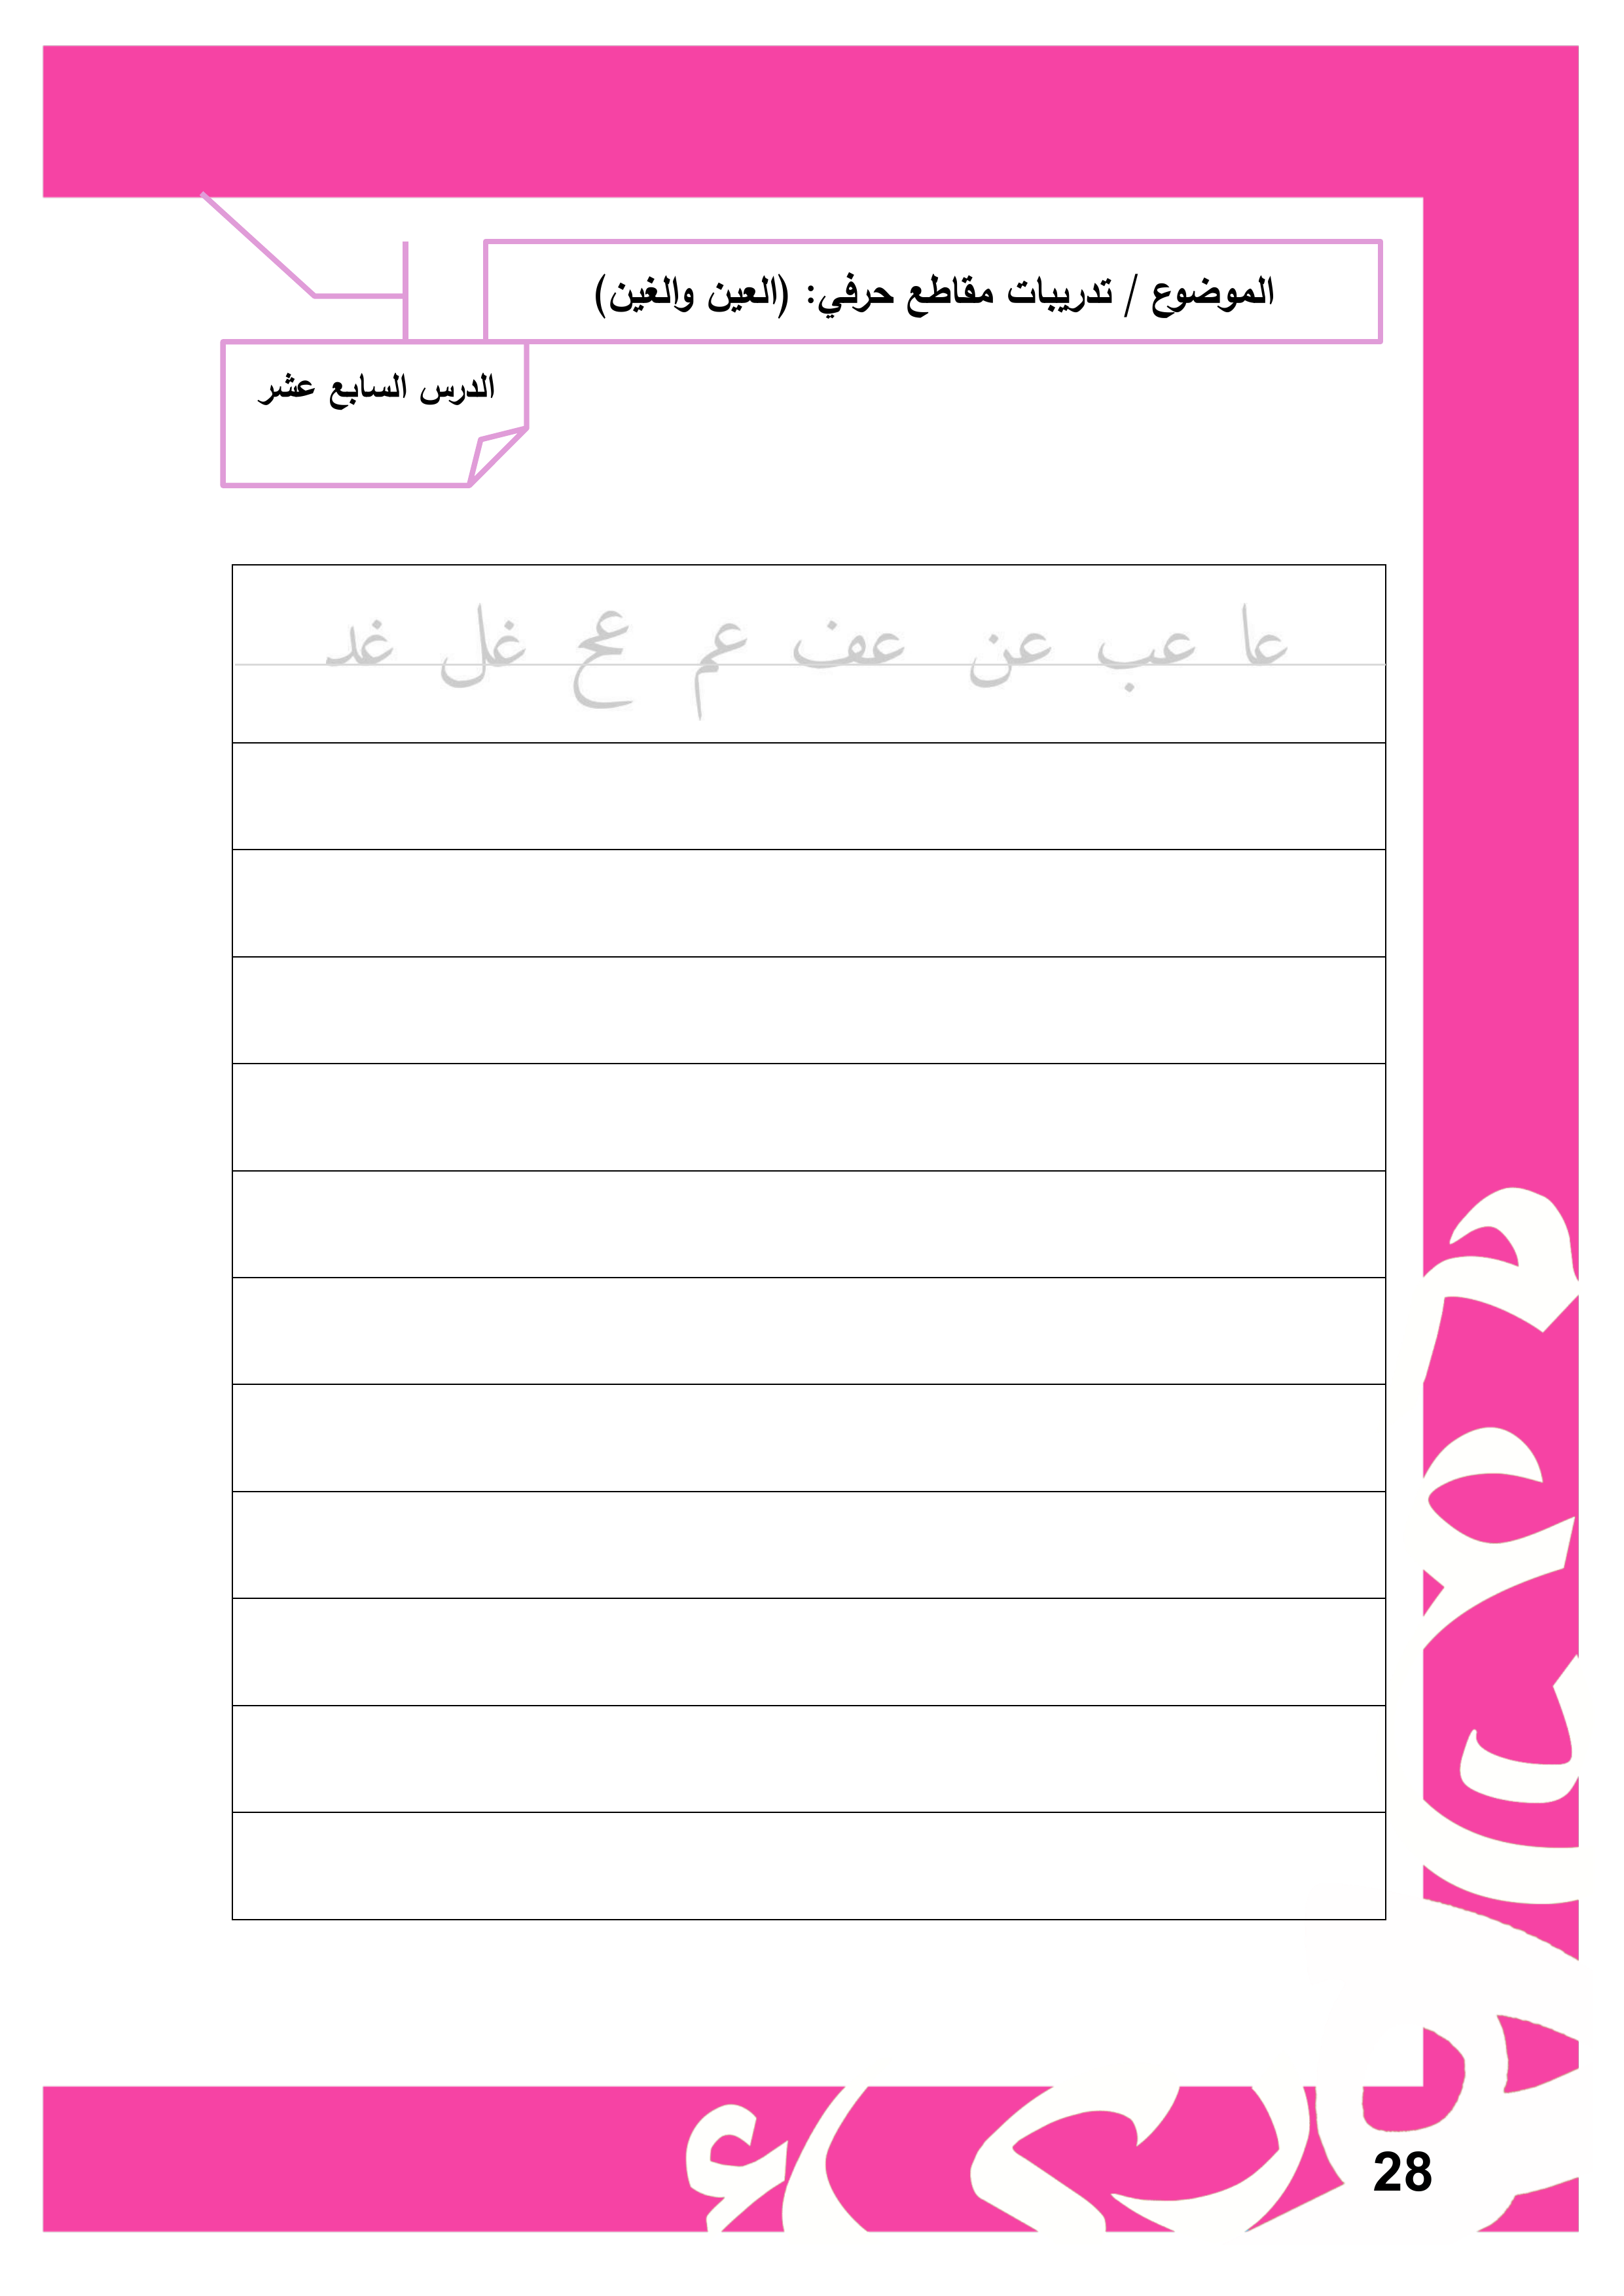 الموضوع / تدريبات مقاطع حرفي: (العين والغين)
الدرس السابع عشر
عا عب عن عف عم عح غل غد
28